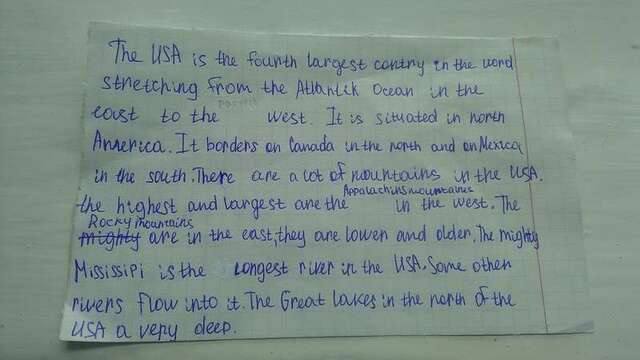 The USA is the fourth largest contry in the word
stretching from the Atlantik Ocean in the
east to the pacific west. It is situated in north
America. It borders on Canada in the north and on Mexica
in the south. There are a lot of mountains in the USA.
the highest and largest are the Appalachins mountains in the west. The
Rocky mountains
mighty are in the east, they are lower and older. The mighty
Mississipi is the longest river in the USA. Some other
rivers flow into it. The Great lakes in the north of the
USA a very deep.